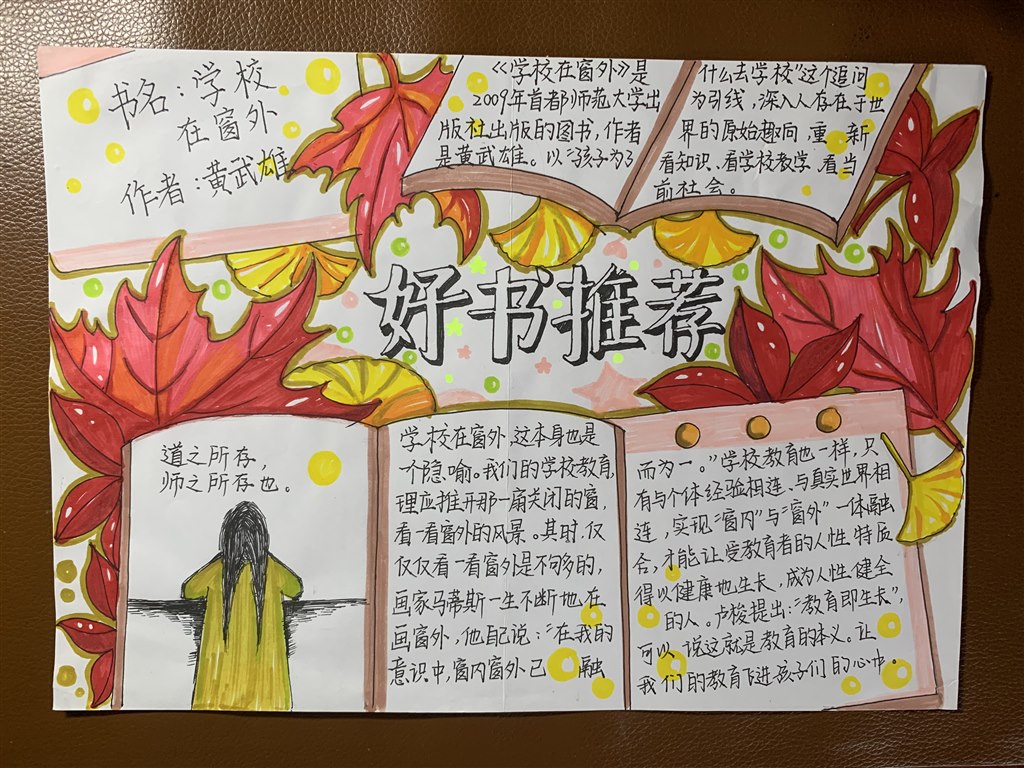 书名：学校
在窗外
作者：黄武雄
《学校在窗外》是
2009年首都师范大学出
版社出版的图书，作者
是黄武雄。以“孩子为了
什么去学校”这个追问
为引线，深入人存在于世
界的原始趣向，重新
看知识、看学校教学、看当
前社会。
好书推荐
道之所存，
师之所存也。
学校在窗外，这本身也是
一个隐喻。我们的学校教育，
理应推开那一扇关闭的窗，
看一看窗外的风景。其时，仅
仅仅看一看窗外是不够的，
画家马蒂斯一生不断地在
画窗外，他自己说：“在我的
意识中，窗内窗外已融
而为一。”学校教育也一样，只
有与个体经验相连、与真实世界相
连，实现“窗内”与“窗外”一体融
合，才能让受教育者的人性特质
得以健康地生长，成为人性健全
的人。卢梭提出：“教育即生长”，
可以说这就是教育的本义。让
我们的教育飞进孩子们的心中。